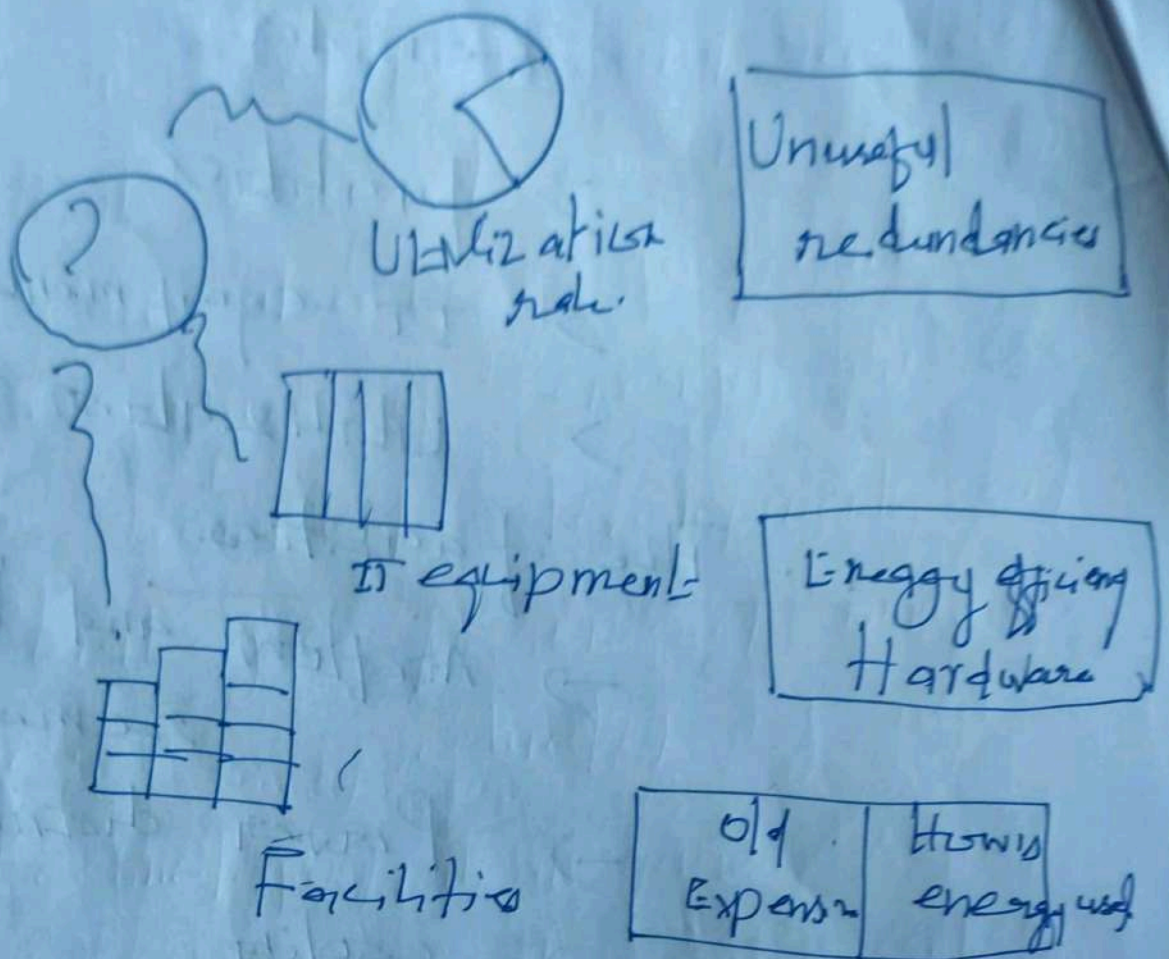 ?
Utilization
rate.
Unuseful
redundancies
IT equipment
Eneggy efficieng
Hardware
Facilities
Old
Expensn
How is
energy used